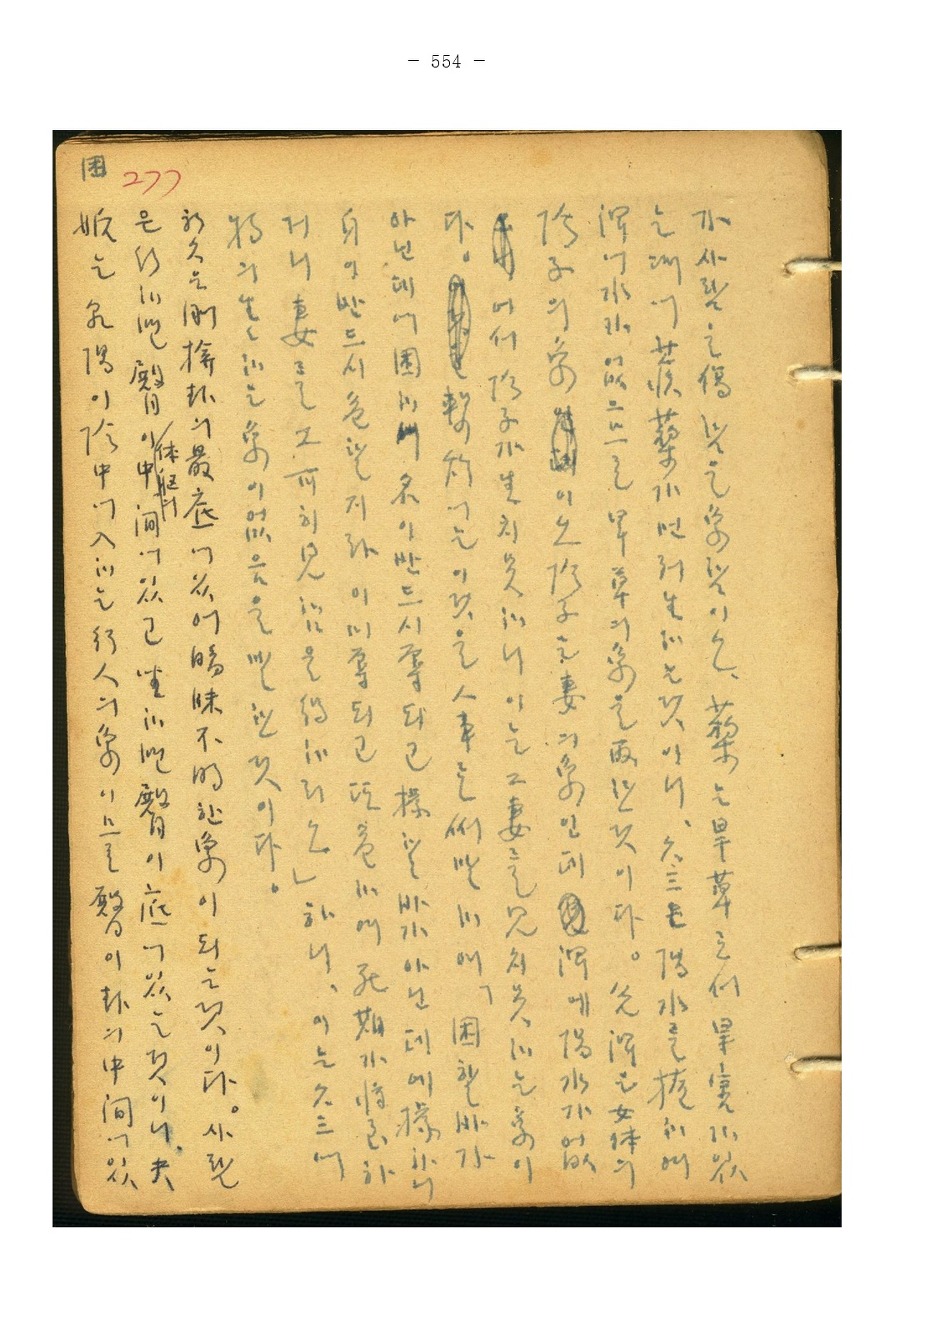 - 554 -
困 277
가 사람을 傷할 象이오, 는 旱草로서 旱寞가 있
는 데에 蒺藜가 生하는 것이니, 는 陽水를 掩하여
澤에 水가 없으므로 旱草의 象을 取한 것이다。 澤은 女体의
陰子의 象이오 陰子는 妻의 象인데 澤에 陽水가 없
어서 陰子가 生치못하니 이는 그 妻를 見치못하는 象이
다。 繫辭에는 이것을 人事로 하여 「困할바가
아닌데에 困하여 名이 반드시 辱되고 據할바가 아닌데에 據하니
身이 반드시 危할지라 이미 辱되고 또 危하여 死期가 將至하
거니 妻를 그 可히 見함을 得하리오」 하니, 이는 에
物의 生하는 象이 없음을 말한 것이다。
初爻는 剛 卦의 最底에 있어 暗昧不明한 象이 되는 것이다。 사람
은 行하면 臀이 体軀의 中間에 있고 坐하면 臀이 底에 있는 것이니, 夬
姤는 陽이 陰中에 入하는 行人의 象이므로 臀이 卦의 中間에 있